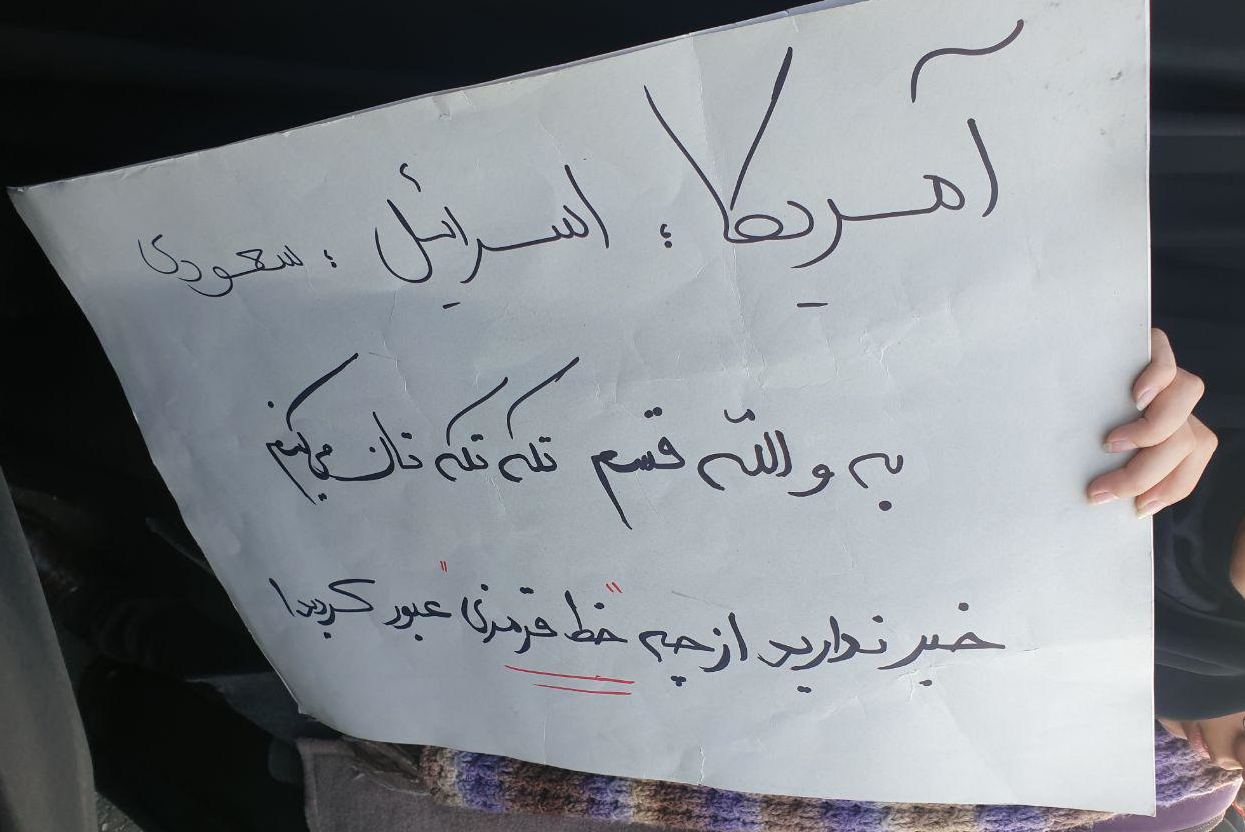 آمریکا ؛ اسرائیل ؛ سعودی
به والله قسم تکه تکه تان میکنیم
خبر ندارید از چه "خط قرمزی" عبور کردید!